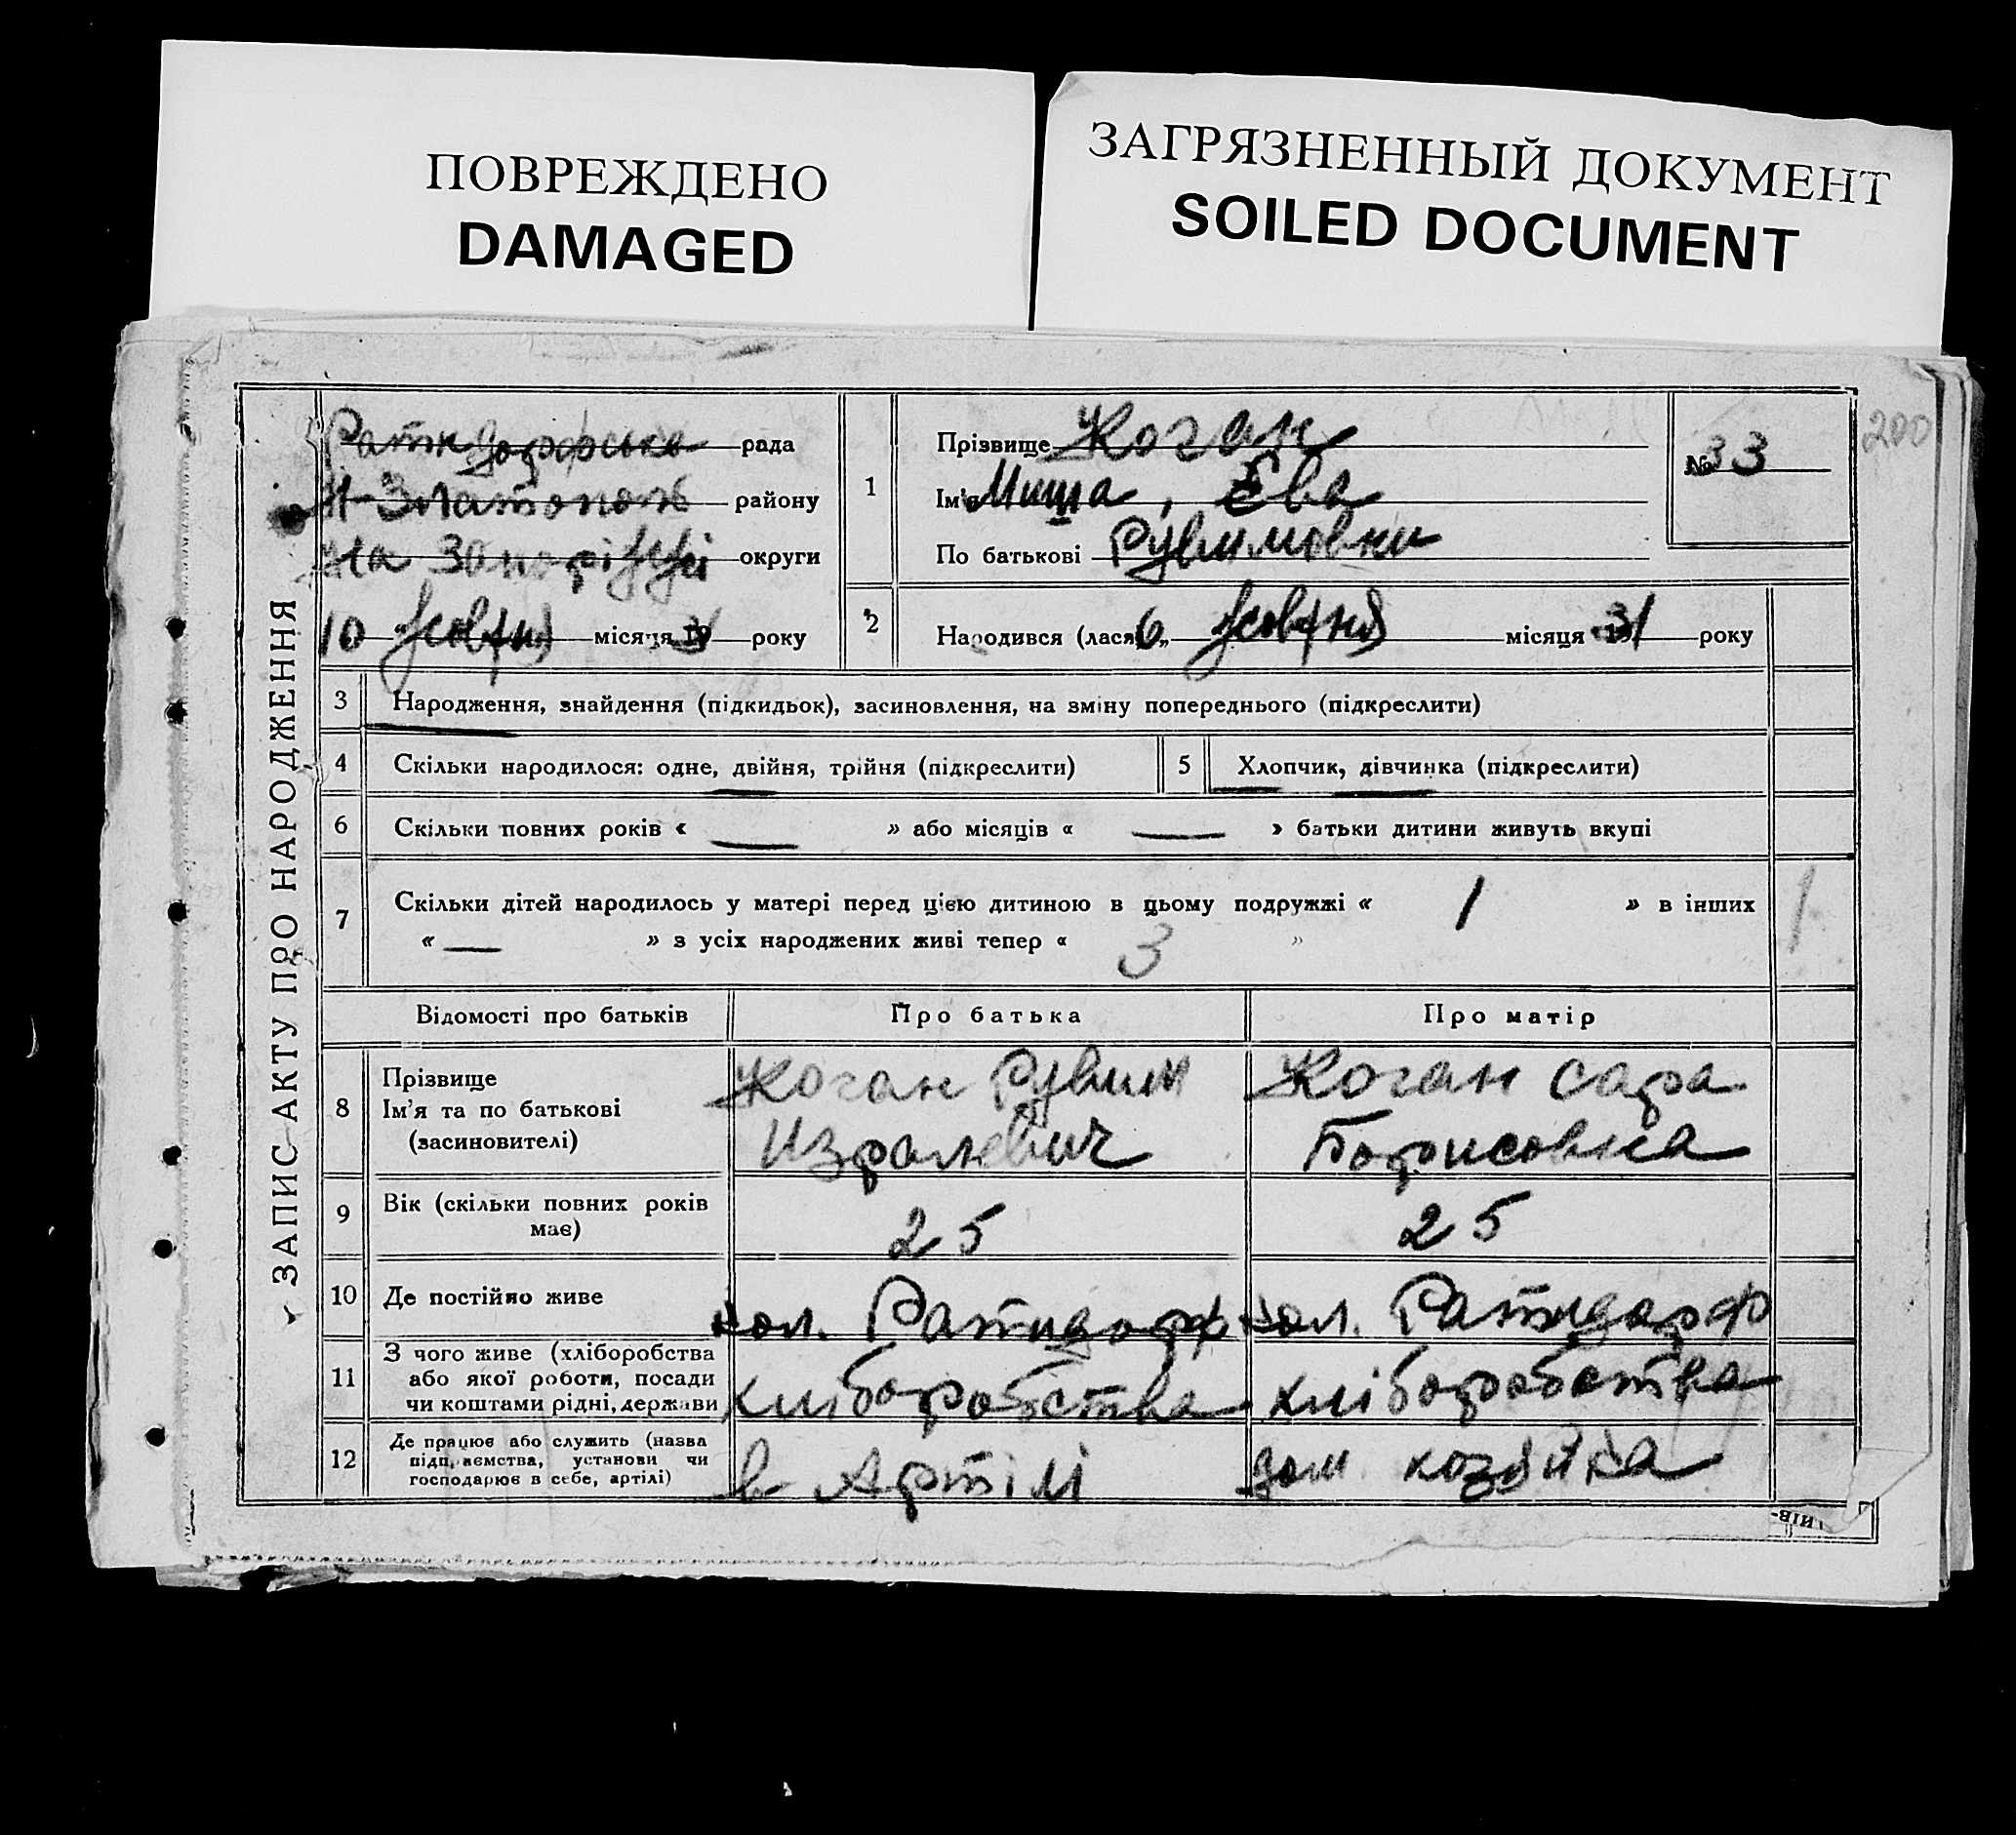 ПОВРЕЖДЕНО
DAMAGED
ЗАГРЯЗНЕННЫЙ ДОКУМЕНТ
SOILED DOCUMENT
200
ЗАПИС АКТУ ПРО НАРОДЖЕННЯ
Ратндорфська рада
Н-Златополь району
На Запоріжжі округи
10 жовтня місяця 1931 року
1
Прізвище Коган
Ім'я Миша, Ева
По батькові Рувимовни
№ 33
2
Народився (лася) 6 „ жовтня місяця 1931 року
3 Народження, знайдення (підкидьок), засиновлення, на зміну попереднього (підкреслити)
4 Скільки народилося: одне, двійня, трійня (підкреслити) 5 Хлопчик, дівчинка (підкреслити)
6 Скільки повних років « — » або місяців « — » батьки дитини живуть вкупі
7 Скільки дітей народилось у матері перед цією дитиною в цьому подружжі « 1 » в інших 1
« — » з усіх народжених живі тепер « 3 »
Відомості про батьків Про батька Про матір
8 Прізвище
Ім'я та по батькові
(засиновителі)
Коган Рувим
Изралевич
Коган Сара
Борисовна
9 Вік (скільки повних років
має)
25 25
10 Де постійно живе кол. Ратндорф кол. Ратндорф
11 З чого живе (хліборобства
або якої роботи, посади
чи коштами рідні, держави
хліборобства хліборобства
12 Де працює або служить (назва
підприємства, установи чи
господарює в себе, артілі)
в Артілі дом. хозяйка